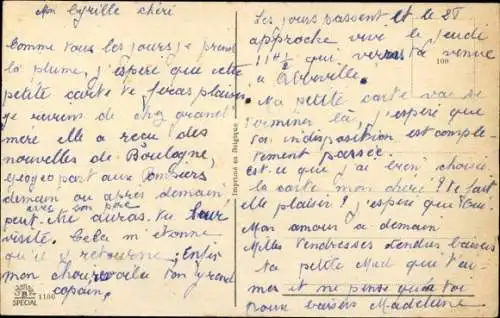 Mon Cyrille chéri
Comme tous les jours je prend
la plume, j'espère que cette
petite carte te feras plaisir
je reviens de chez grand
mère elle a recu des
nouvelles de Boulogne,
part aux
demain ou après demain
avec son père
peut-être auras-tu leur
visite. Cela m'étonne
qu'il y retourne; Enfin
mon chou, voila ton grand
copain,
1180
SPECIAL
Imprimé en Belgique
Les jours passent et le 28
approche vive le jeudi
11 H ½ qui verras ta venue
100
a
Ma petite carte vas se
terminer là, j'espère que
ton indisposition est complè
tement passée.
est-ce que j'ai bien choisi
la carte mon chéri? te fait
elle plaisir? j'espère que oui.
Mon amour a demain
Milles tendresses tendres baisers
ta petite Mad qui t'ai-
mes et ne pense qu'a toi
bons baisers Madelaine